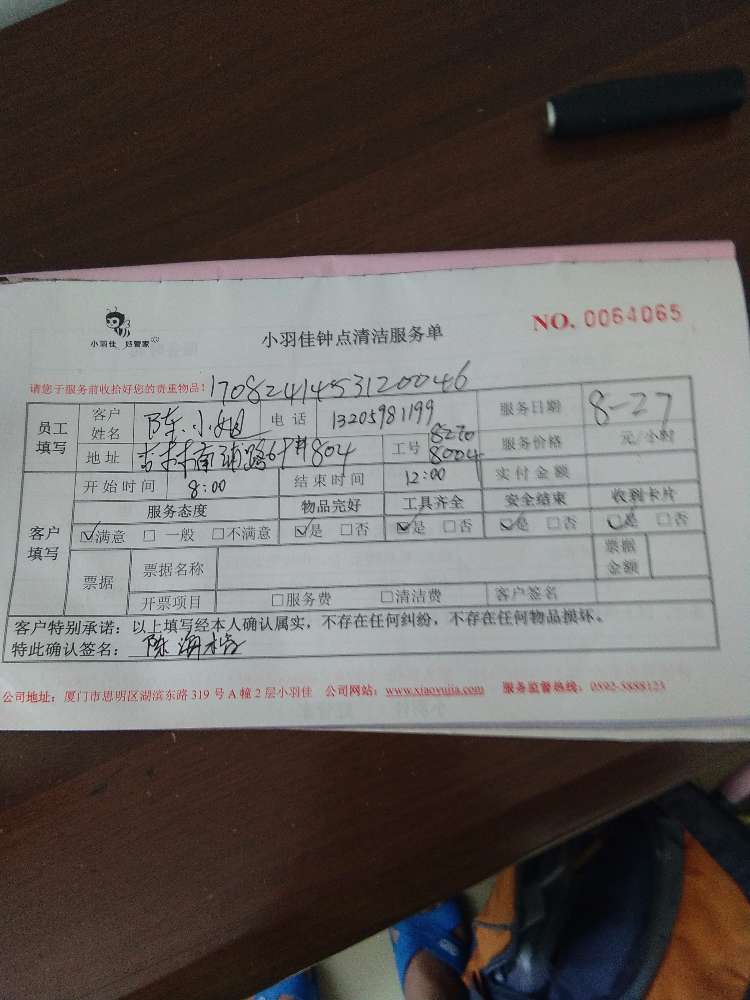 小羽佳 好管家
小羽佳钟点清洁服务单
NO. 0064065
请您于服务前收拾好您的贵重物品! 17082414453120046
员工填写 客户姓名 陈小姐 电话 13205981199 服务日期 8-27
地址 804 工号 8270 8004 服务价格 元/小时
客户填写 开始时间 8:00 结束时间 12:00 实付金额
服务态度 物品完好 工具齐全 安全结束 收到卡片
☑满意 □一般 □不满意 ☑是 □否 ☑是 □否 ☑是 □否 ☑是 □否
票据 票据名称 票据金额
开票项目 □服务费 □清洁费 客户签名
客户特别承诺：以上填写经本人确认属实，不存在任何纠纷，不存在任何物品损坏。
特此确认签名： 陈海
公司地址：厦门市思明区湖滨东路 319 号 A 幢 2 层小羽佳 公司网站：www.xiaoyujia.com 服务监督热线：0592-5888123